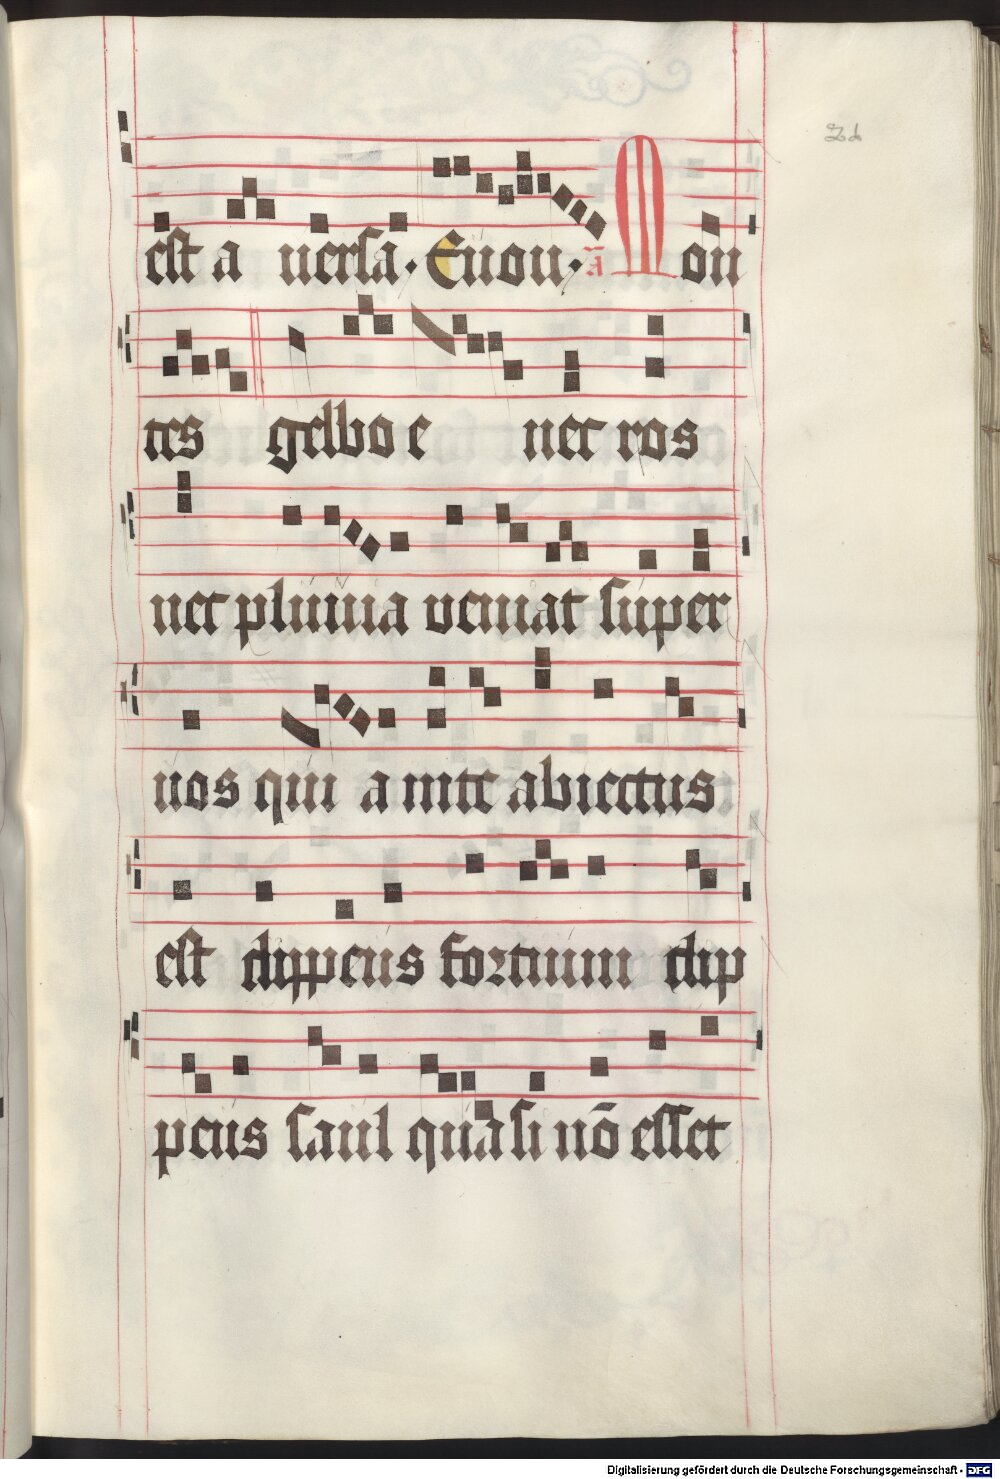 est a uersa. Euou. a Mon
tes gelboe nec ros
nec pluuia veniat super
uos qui a in te abiectus
est clippeus fortium clip
peus saul quasi nō esset
Digitalisierung gefördert durch die Deutsche Forschungsgemeinschaft - DFG